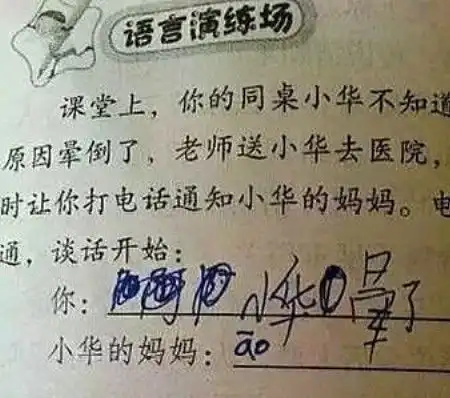 语言演练场
课堂上，你的同桌小华不知道
原因晕倒了，老师送小华去医院，
时让你打电话通知小华的妈妈。电
通，谈话开始：
你：小华晕了
小华的妈妈：āo